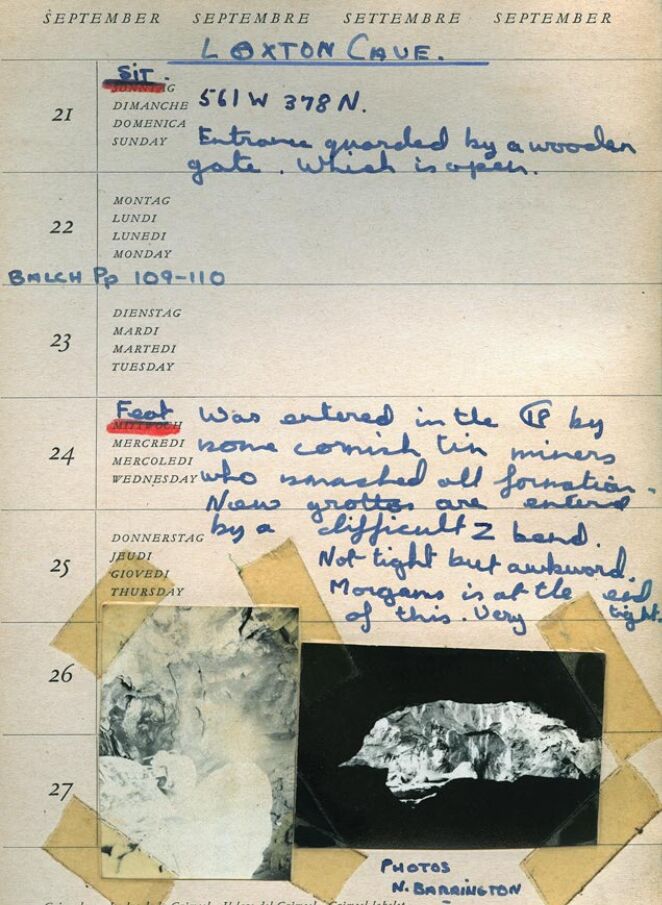 SEPTEMBER SEPTEMBRE SETTEMBRE SEPTEMBER
LOXTON CAVE.
Sit.
SONNTAG
21 DIMANCHE 561 W 378 N.
DOMENICA
SUNDAY Entrance guarded by a wooden
gate. Which is open.
MONTAG
22 LUNDI
LUNEDI
MONDAY
BALCH Pp 109-110
DIENSTAG
23 MARDI
MARTEDI
TUESDAY
Feat Was entered in the by
MITTWOCH
24 MERCREDI some cornish tin miners
MERCOLEDI
WEDNESDAY who smashed all formation.
New grottos are entered
by a difficult Z bend.
DONNERSTAG
25 JEUDI Not tight but awkward.
GIOVEDI
THURSDAY Morgans is at the end
of this. Very tight.
26
27
PHOTOS
N. BARRINGTON